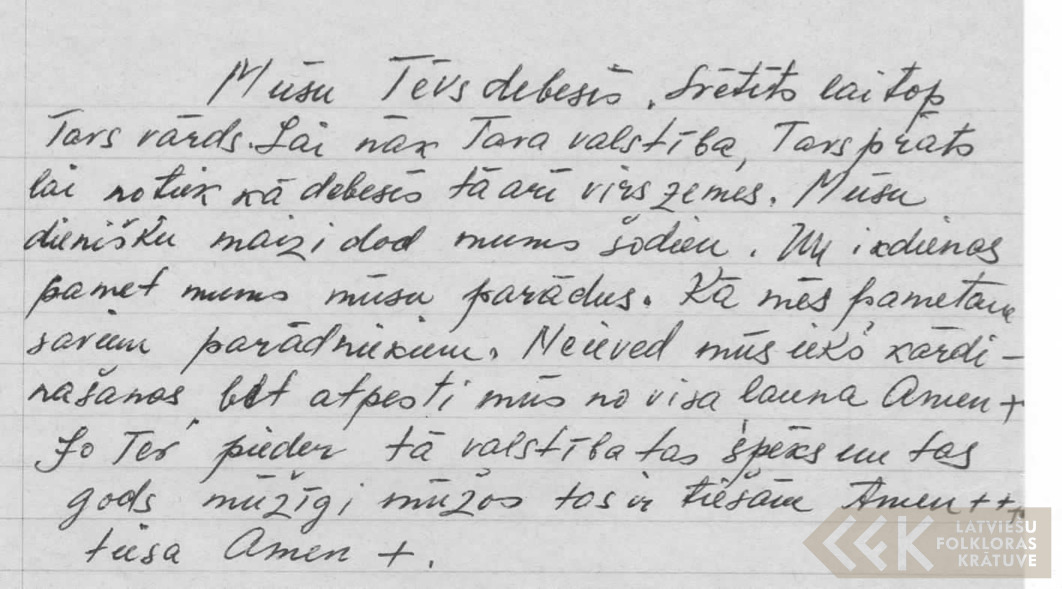 Mūsu Tēvs debesīs. Svētīts lai top
Tavs vārds. Lai nāk Tava valstība, Tavs prāts
lai notiek kā debesīs tā arī virs zemes. Mūsu
dienišķu maizi dod mums šodien. Un ikdienas
pamet mums mūsu parādus. Kā mēs pametam
saviem parādniekiem. Neieved mūs iekš kārdi-
našanas, bet atpesti mūs no visa launa Amen +
Jo Tev pieder tā valstība tas spēks un tas
gods mūžīgi mūžos tas ir tiešām Amen + + +
tiesa Amen +.
LATVIEŠU
FOLKLORAS
KRĀTUVE